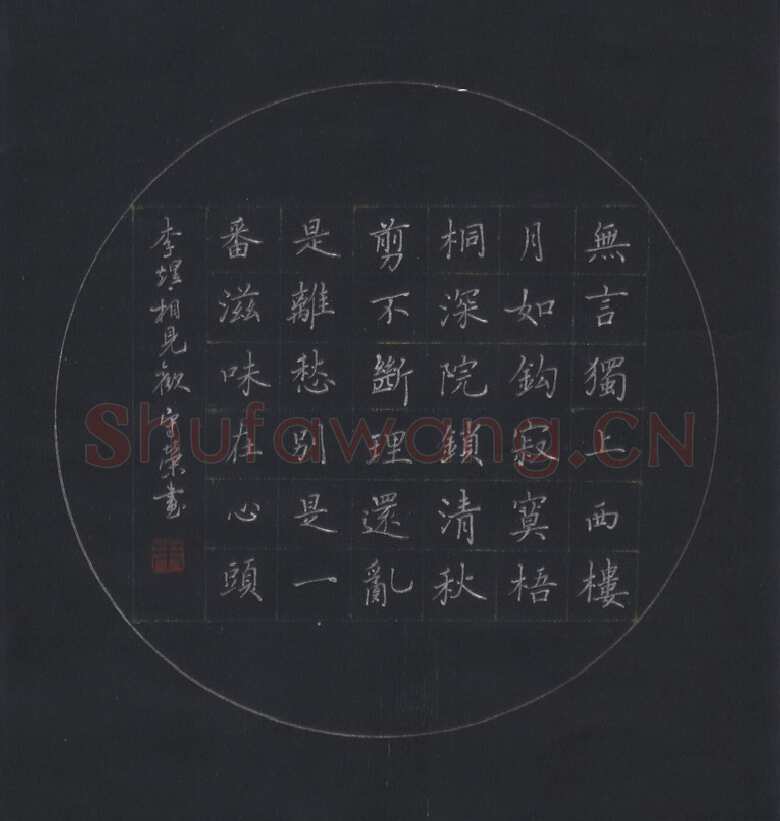 無言獨上西樓
月如鈎寂寞梧
桐深院鎖清秋
剪不斷理還亂
是離愁別是一
番滋味在心頭
李煜相見歡 守榮書
Shufawang.CN